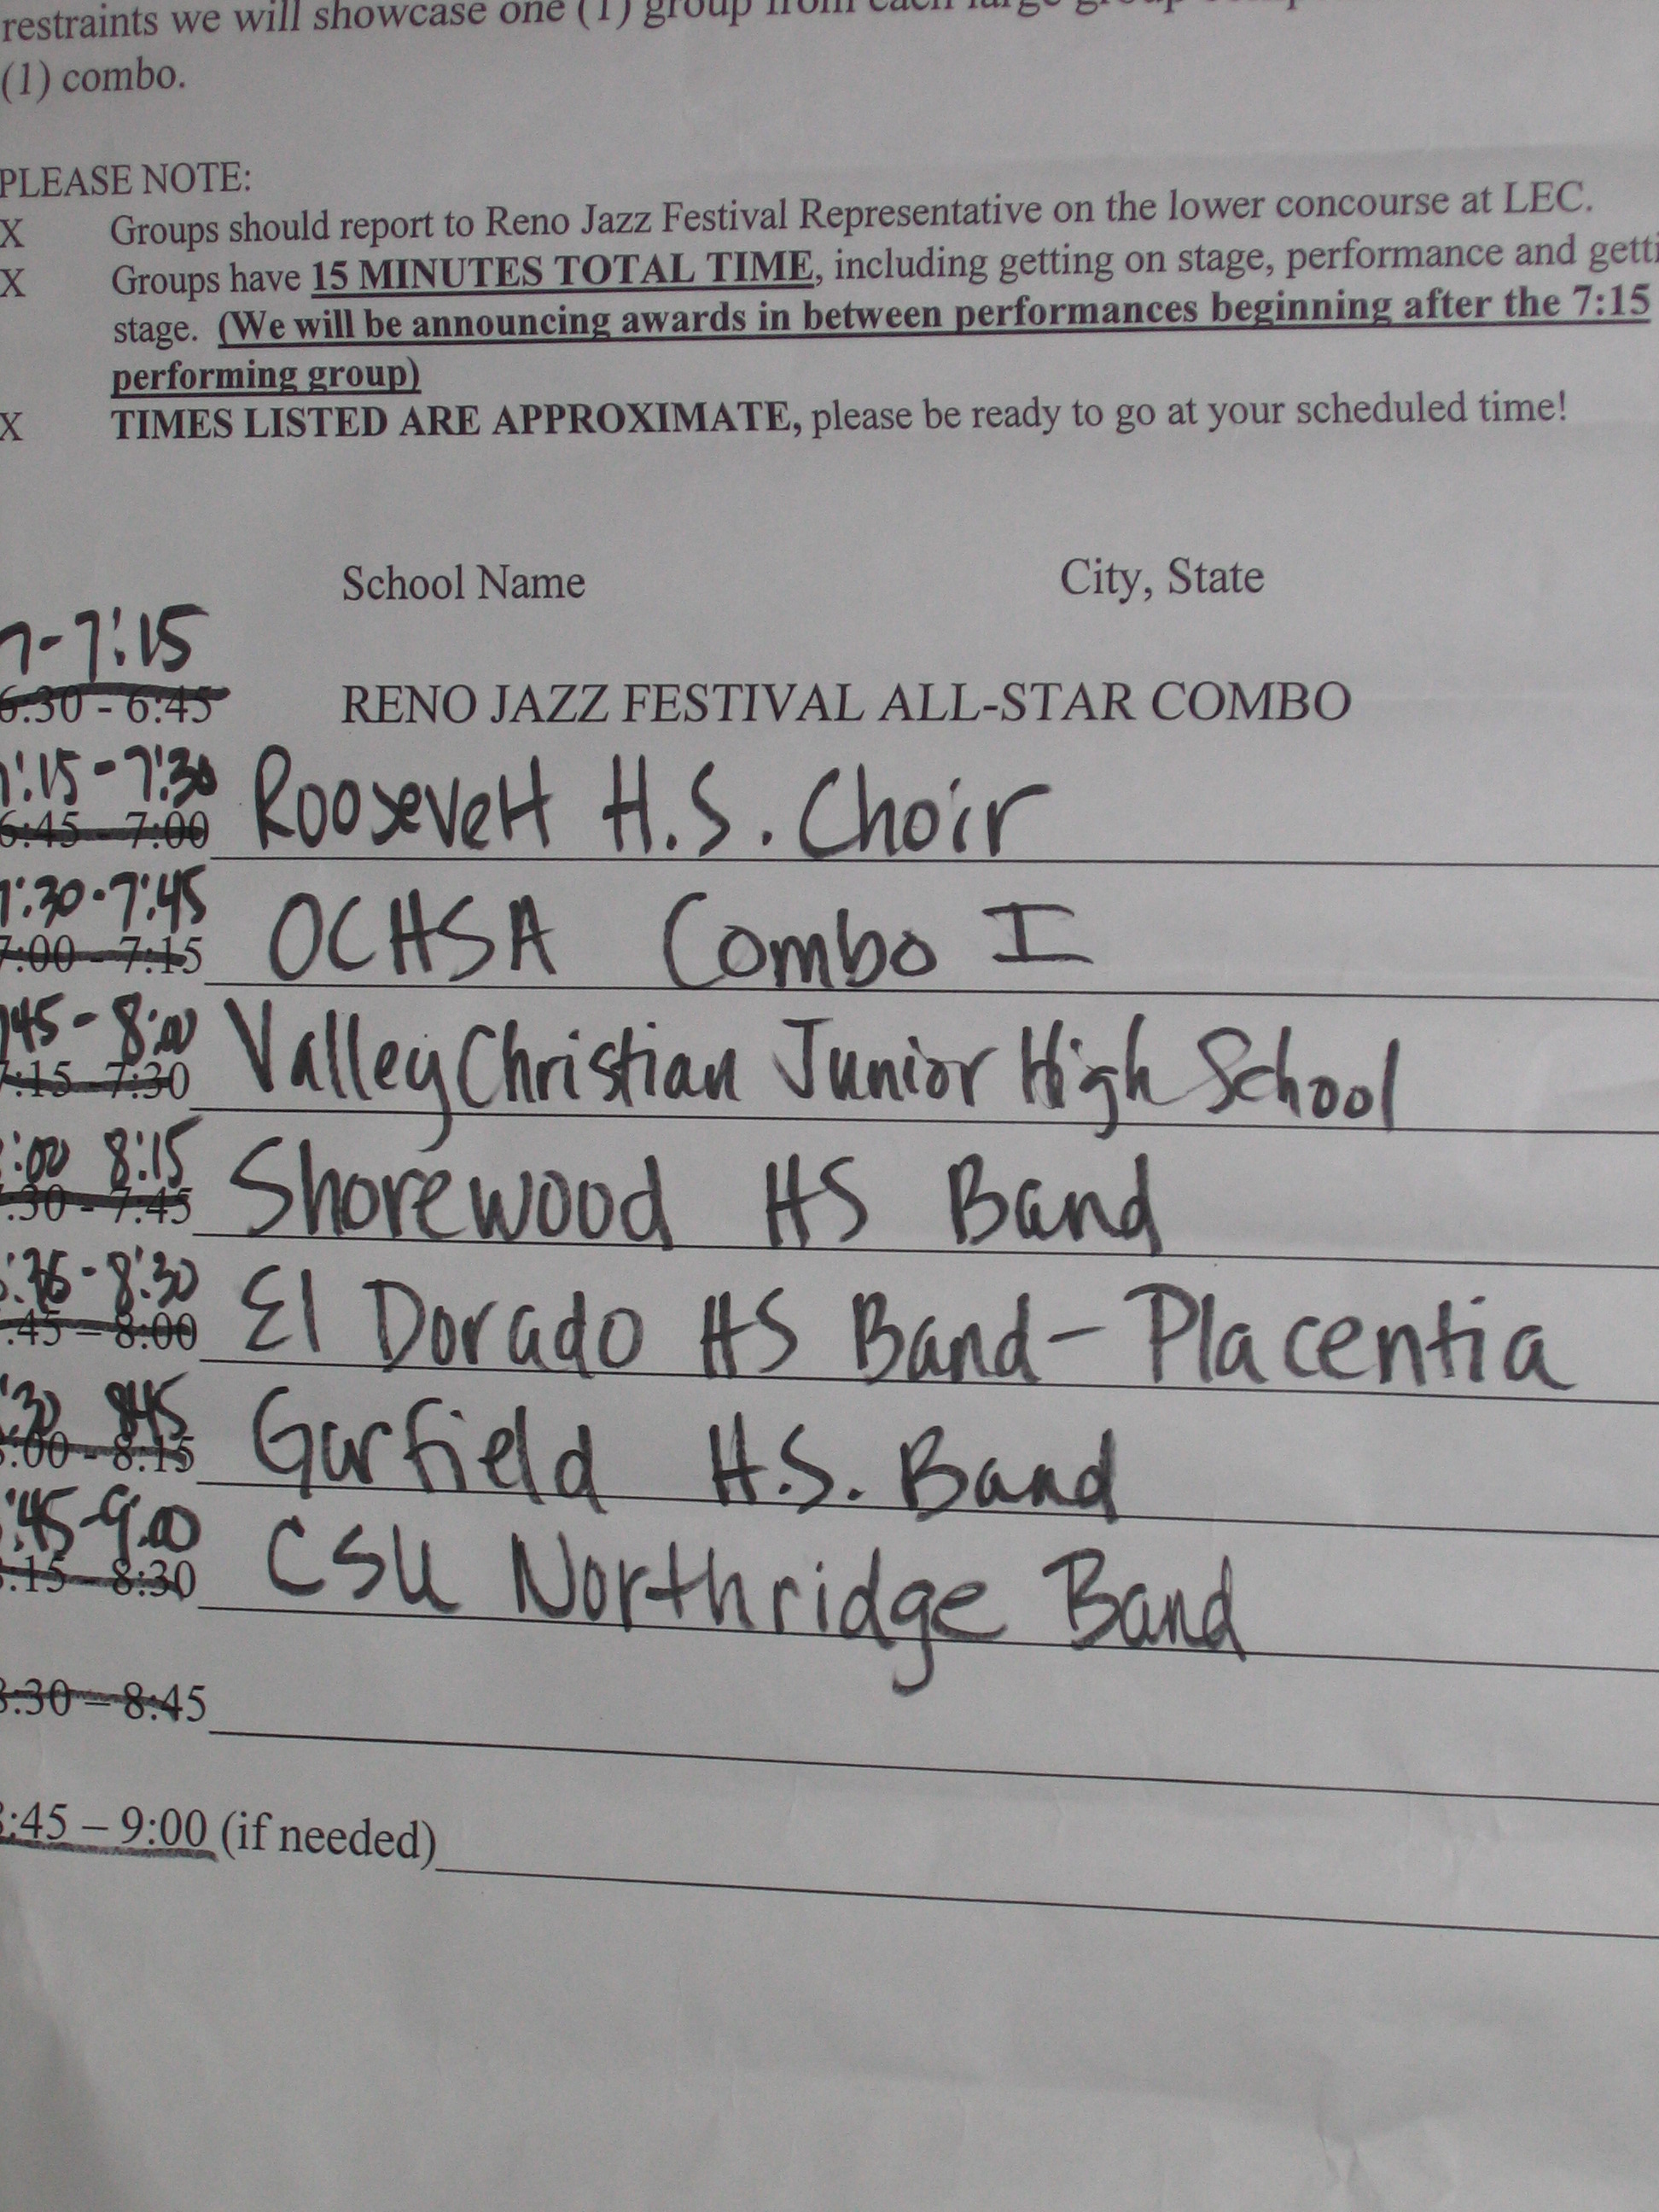 restraints we will showcase one (1) group from each large group
(1) combo.
PLEASE NOTE:
X Groups should report to Reno Jazz Festival Representative on the lower concourse at LEC.
X Groups have 15 MINUTES TOTAL TIME, including getting on stage, performance and getti
stage. (We will be announcing awards in between performances beginning after the 7:15
performing group)
X TIMES LISTED ARE APPROXIMATE, please be ready to go at your scheduled time!
School Name City, State
7-7:15
6:30 - 6:45 RENO JAZZ FESTIVAL ALL-STAR COMBO
7:15-7:30 Roosevelt H.S. Choir
6:45 - 7:00
7:30-7:45 OCHSA Combo I
7:00 - 7:15
:45-8:00 Valley Christian Junior High School
7:15 - 7:30
:00 8:15 Shorewood HS Band
:30 - 7:45
8:30 El Dorado HS Band - Placentia
:45 – 8:00
:30 845 Garfield H.S. Band
:00 - 8:15
:45-9:00 CSU Northridge Band
:15 - 8:30
8:30 – 8:45
8:45 – 9:00 (if needed)